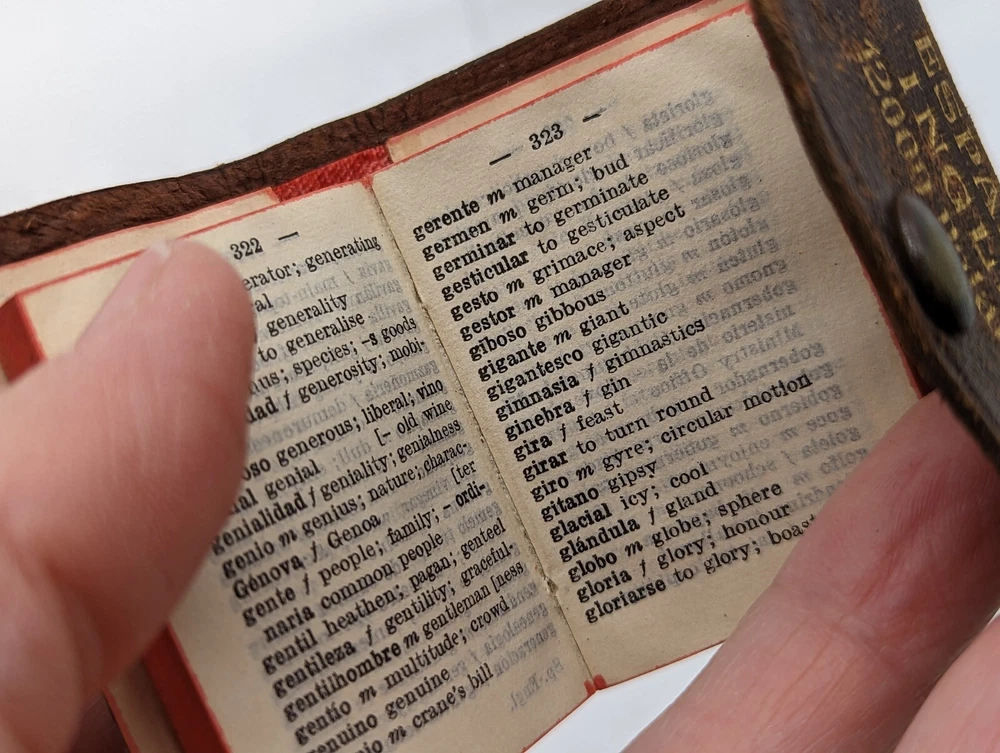 322 —
erator; generating
al
generality
to generalise
species; -s goods
generosity, mobi-
generous; liberal; vino
genial [- old wine
genialidad f geniality; genialness
genio m genius; nature; charac-
Génova f Genoa [ter
gente f people; family; - ordi-
naria common people
gentil heathen; pagan; genteel
gentileza f gentility; graceful-
gentilhombre m gentleman [ness
gentío m multitude; crowd
genuine
m crane's bill
— 323 —
gerente m manager
germen m germ; bud
germinar to germinate
gesticular to gesticulate
gesto m grimace; aspect
gestor m manager
giboso gibbous
gigante m giant
gigantesco gigantic
gimnasia f gimnastics
ginebra f gin
gira f feast
girar to turn round
giro m gyre; circular motion
gitano gipsy
glacial icy; cool
glándula f gland
globo m globe; sphere
gloria f glory; honour
gloriarse to glory; boast